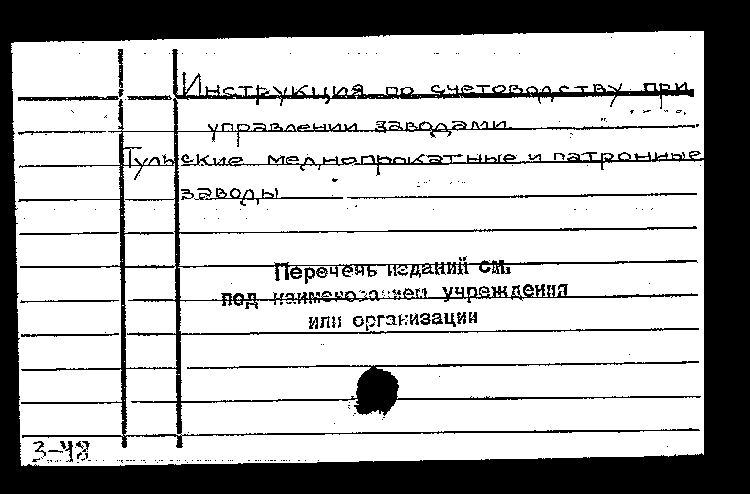 Инструкция по счетоводству при
управлении заводами.
Тульские меднопрокатные и патронные
заводы
Перечень изданий см.
под наименованием учреждения
или организации
3-48